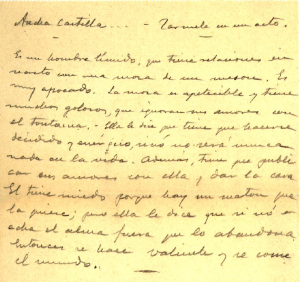 Andrea Castilla .... - Zarzuela en un acto.
Es un hombre tímido, que tiene relaciones en
con una moza de un meson. Es
muy apocado. La moza es apetecible y tiene
muchos golosos, que ignoran sus amores con
el . - Ella le dice que tiene que hacerse
decidido y enérgico, si no no será nunca
nada en la vida. Ademas, tiene que publi
car sus amores con ella y dar la cara
El tiene miedo porque hay un maton que
la quiere; pero ella le dice que si no
echa el alma fuera que lo abandona.
Entonces se hace valiente y se come
el mundo.